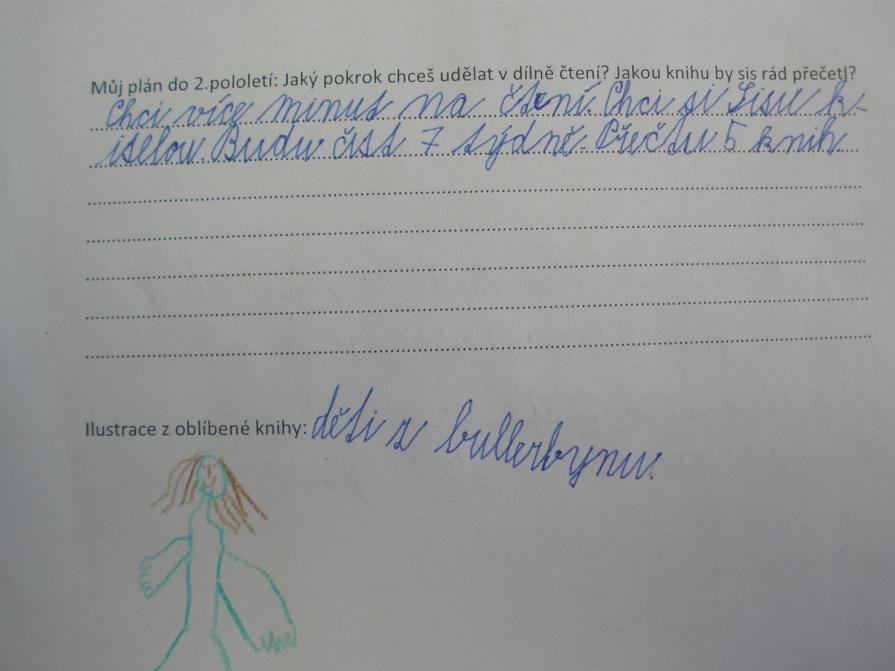 Můj plán do 2.pololetí: Jaký pokrok chceš udělat v dílně čtení? Jakou knihu by sis rád přečetl?
Chci více minut na čtení. Chci si Lisu k-
iselou. Budu číst 7 týdně. Přečtu 5 knih
Ilustrace z oblíbené knihy: děti z bullerbynu.